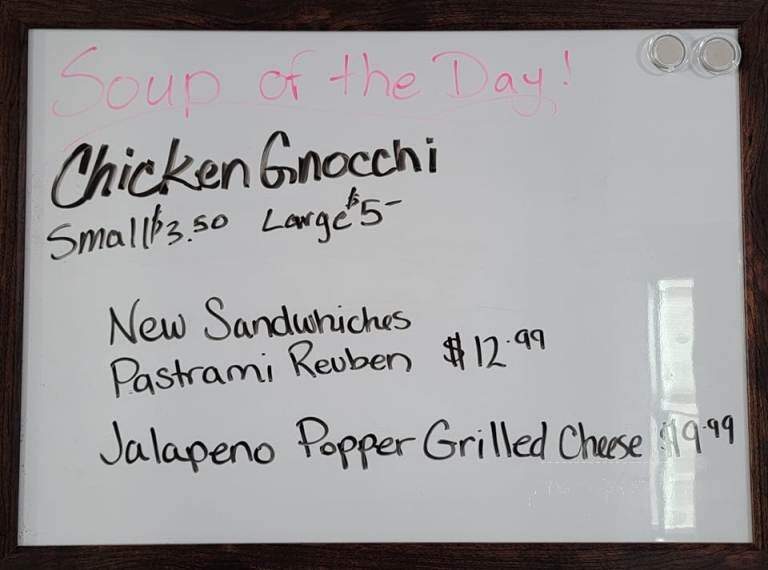 Soup of the Day!
Chicken Gnocchi
Small $3.50 Large $5-
New Sandwhiches
Pastrami Reuben $12.99
Jalapeno Popper Grilled Cheese $9.99